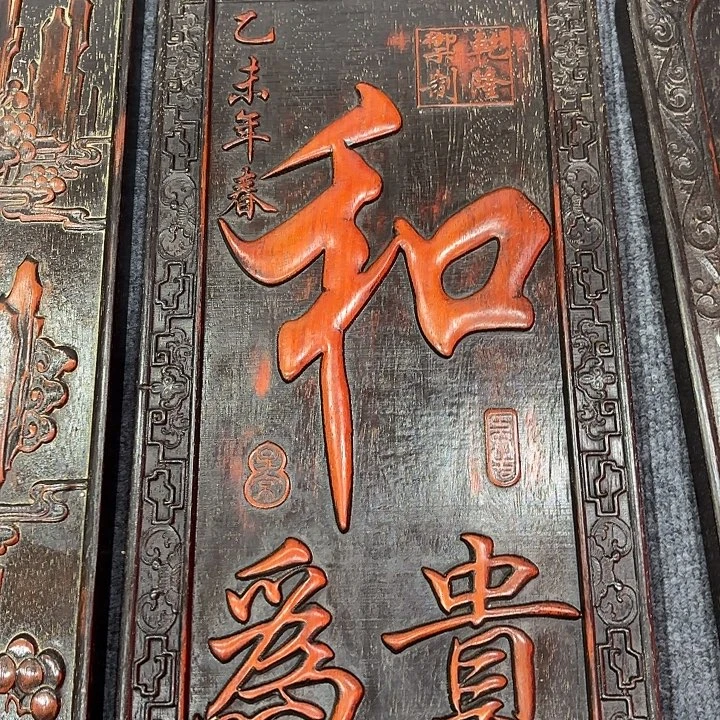 乾隆
御制
乙未年春
和
為貴